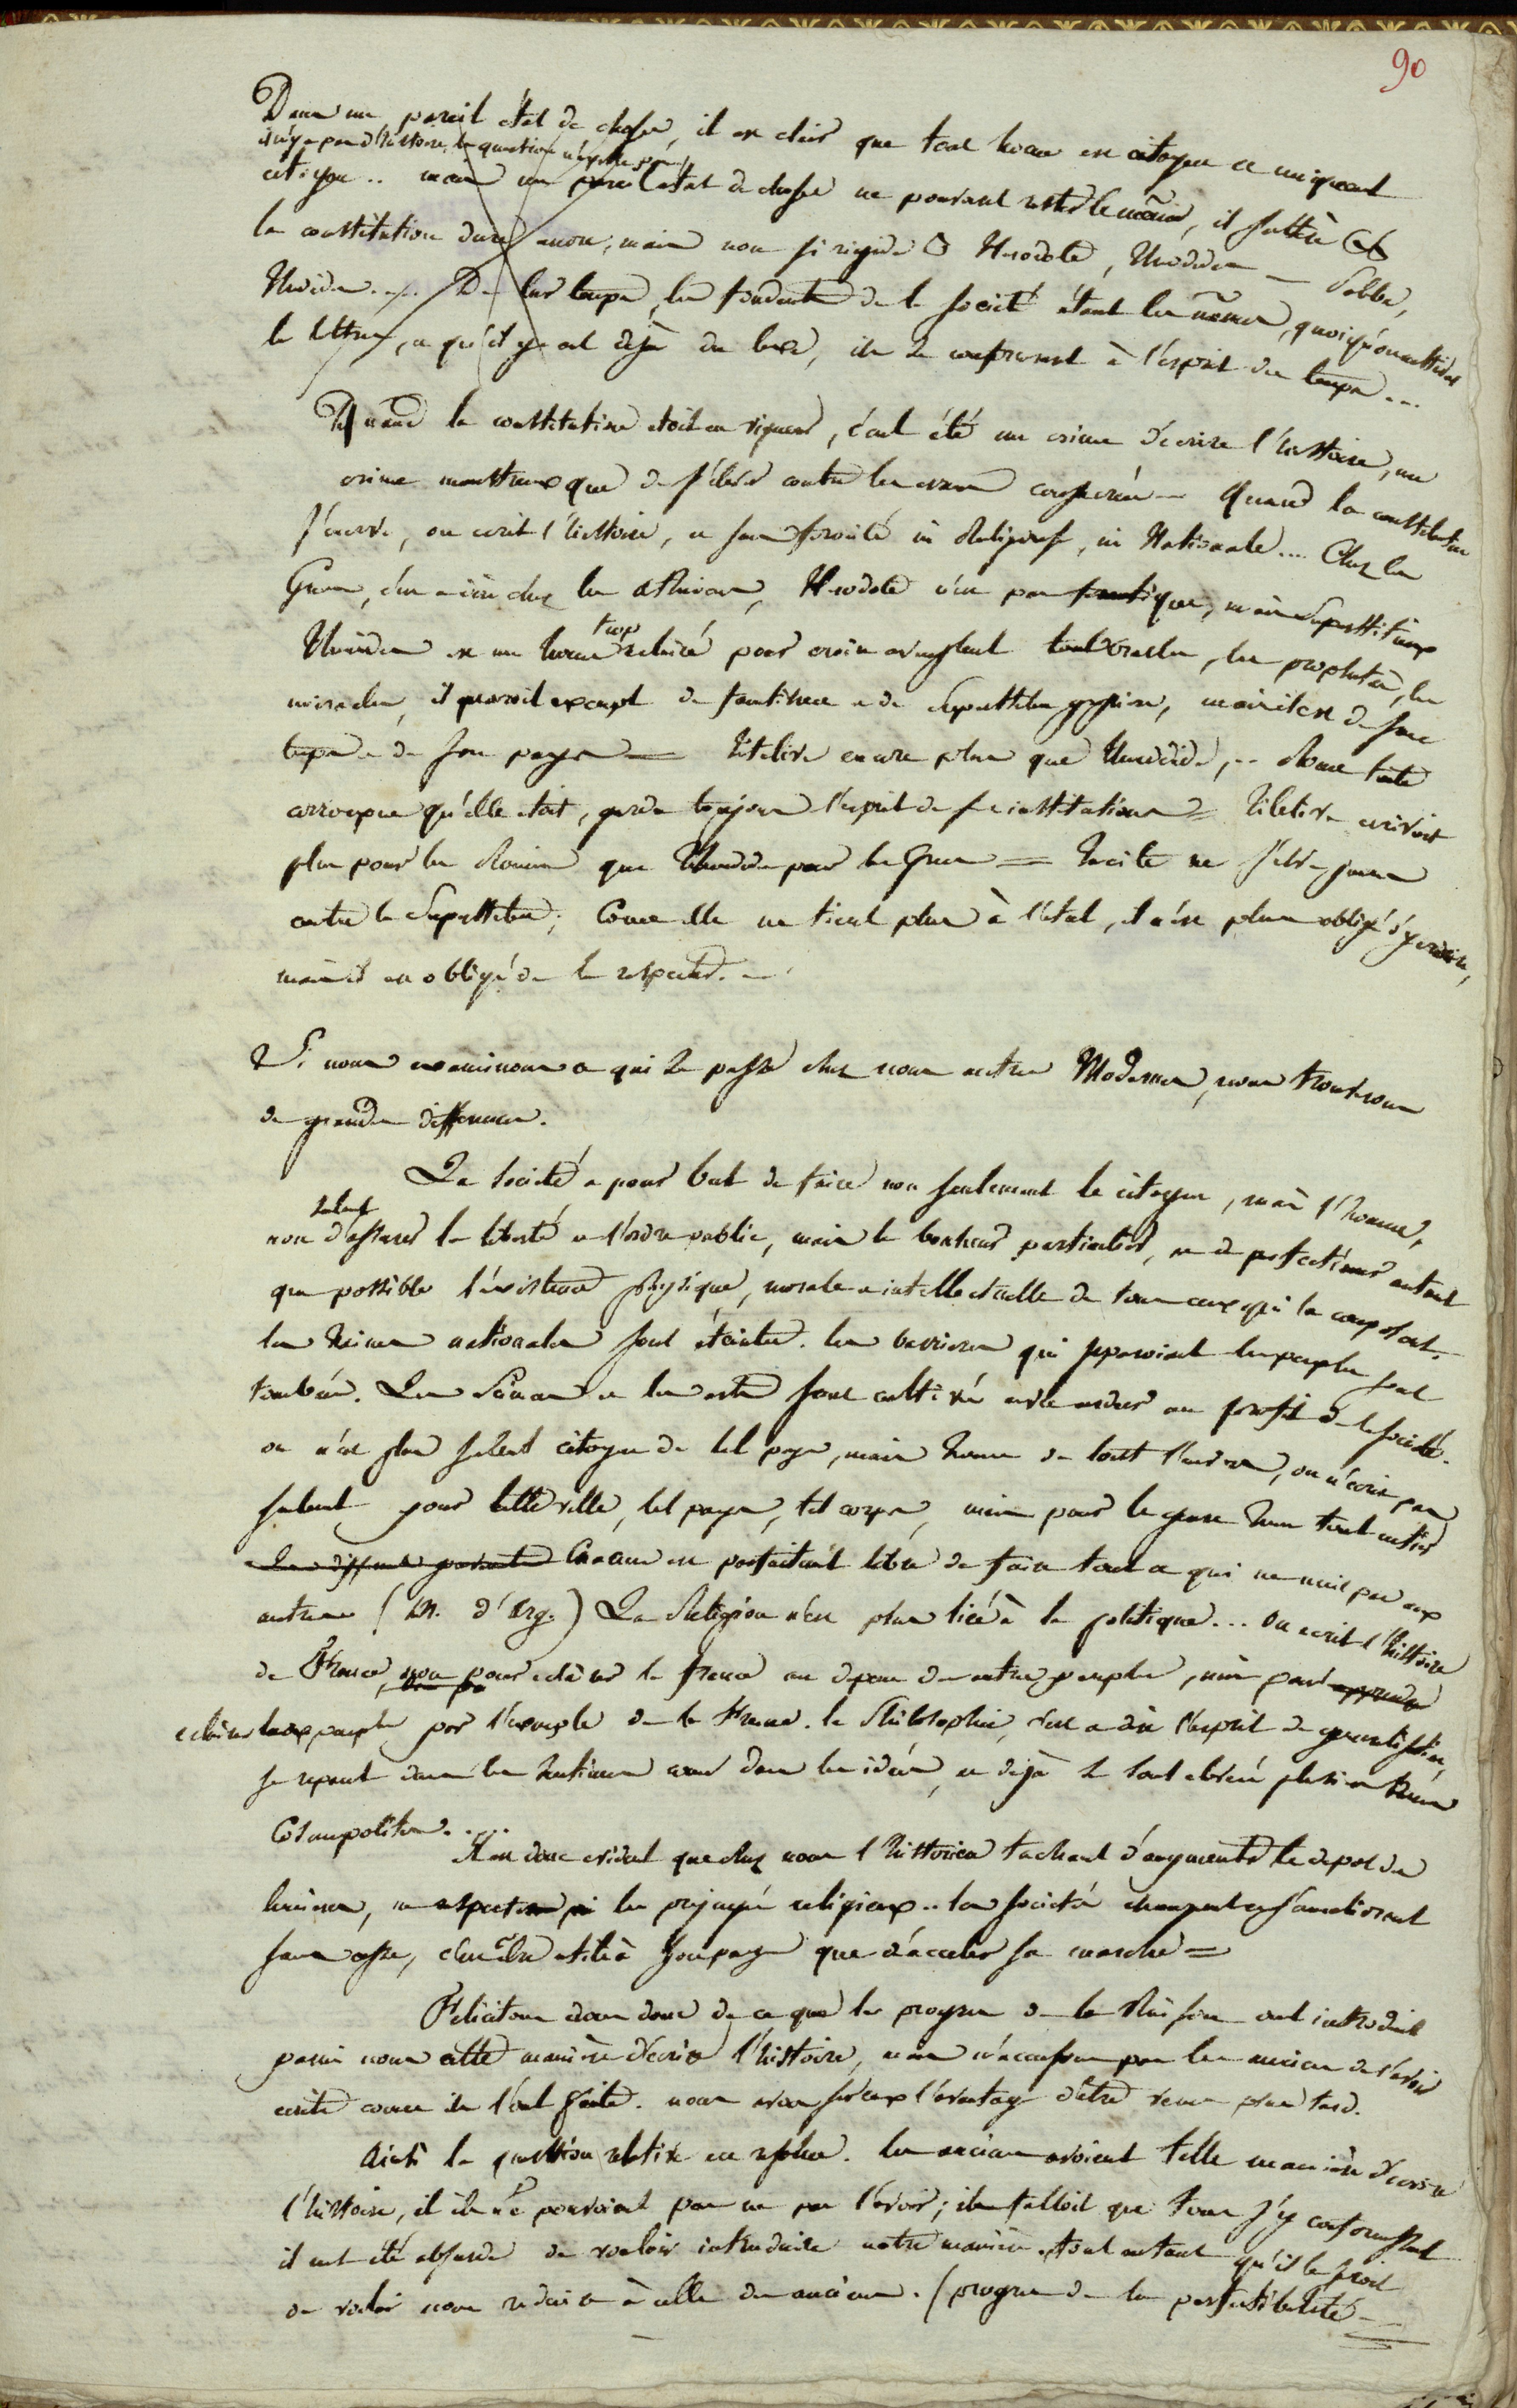 90
Dans un pareil état de choses, il est clair que tout homme est citoyen et uniquement
il n'y a pas d'histoire, la question n'existe pas
citoyen .. mais un pareil état de choses ne pouvant rester le même, il s'altère
la constitution dure encore, mais non si rigide Herodote, Thucidide
Thucidide ... De leur temps, les fondements de la société étant les mêmes, quoiqu'on
les lettres, et qu'il y ait déjà du luxe, ils se conforment à l'esprit du temps ...
Quand la constitution etoit en vigueur, c'eut été un crime d'écrire l'histoire, un
crime monstrueux que de s'élever contre les erreurs consacrées — Quand la constitution
s'énerve, on ecrit l'histoire, et sans ni Religieuse, ni Nationale .... Chez les
Grecs, c'est à dire chez les Atheniens, Herodote n'est pas fanatique, mais superstitieux
Thucidide est un homme trop eclairé pour croire aveuglement tout oracles, les prophetes, les
miracles, il paroit exempt de fanatisme et de superstition grossière, mais il est de son
temps et de son pays — Titelive encore plus que Thucidide, .. Rome toute
corrompue qu'elle etoit, garda toujours l'esprit de ses institutions = Titelive ecrivoit
plus pour les Romains que Thucidide pour les Grecs = Tacite ne s'elève jamais
contre la superstition; Comme elle ne tient plus à l'état, il n'est plus obligé d'y croire,
mais il est obligé de la respecter. —
Si nous examinons ce qui se passe chez nous autres Modernes, nous trouverons
de grandes differences.
La société a pour but de faire non seulement le citoyen, mais l'homme,
non seulement d'assurer la liberté et l'ordre public, mais le bonheur particulier, et de perfectionner autant
que possible l'existence physique, morale et intellectuelle de tous ceux qui la composent.
les haines nationales sont éteintes. les barrieres qui separoient les peuples sont
tombées. Les Sciences et les arts sont cultivés avec ardeur au profit de la société.
on n'est plus seulement citoyen de tel pays, mais homme de tout l'univers, on n'écrit pas
seulement pour telle ville, tel pays, tel corps, mais pour le genre humain tout entier
Chacun est parfaitement libre de faire tout ce qui ne nuit pas aux
autres (M. d'Arg.) La Religion n'est plus liée à la politique ... On ecrit l'histoire
de France, non pour eclairer la france au depens des autres peuples, mais pour
eclairer les peuples par l'exemple de la France. la Philosophie, c'est a dire l'esprit de generalisation,
se repand dans les sentimens comme dans les idées, et déjà se sont elevées plusieurs âmes
Cosmopolites. ....
Il est donc evident que chez nous l'historien tachant d'augmenter le depot des
lumieres, ne respecte les prejugés religieux .. la société changeant et s'ameliorant
sans cesse, c'est être utile à son pays que d'accelerer sa marche =
Felicitons nous donc de ce que les progrès de la Raison ont introduit
parmi nous cette manière d'écrire l'histoire, mais n'accusons pas les anciens de l'avoir
ecrite comme ils l'ont faite. nous avons sur eux l'avantage d'être venus plus tard.
Ainsi la question relative est resolue. les anciens avoient telle manière d'ecrire
l'histoire, ils ne pouvoient pas ne pas l'avoir; il falloit que tous s'y conformassent
il eut été absurde de vouloir introduire notre manière, tout autant qu'il le seroit
de vouloir nous reduire à celle des anciens. (progrès de la perfectibilité —